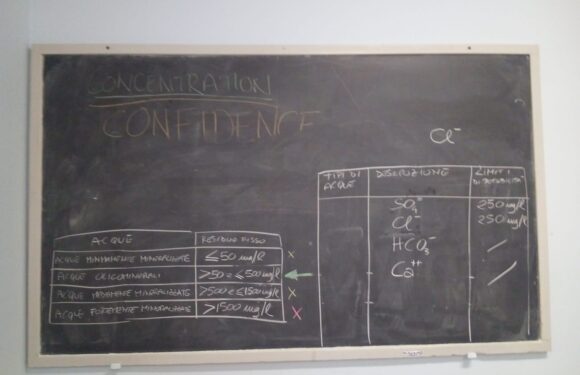 CONCENTRATION
CONFIDENCE
Cl⁻
TIPI DI ACQUE DESCRIZIONE LIMITI DI POTABILITÀ
SO₄⁼ 250 mg/l
Cl⁻ 250 mg/l
HCO₃⁻ /
Ca⁺⁺ /
ACQUE RESIDUO FISSO
ACQUE MINIMAMENTE MINERALIZZATE ≤50 mg/l x
ACQUE OLIGOMINERALI >50 e ≤500 mg/l ←
ACQUE MEDIAMENTE MINERALIZZATE >500 e ≤1500 mg/l x
ACQUE FORTEMENTE MINERALIZZATE >1500 mg/l x